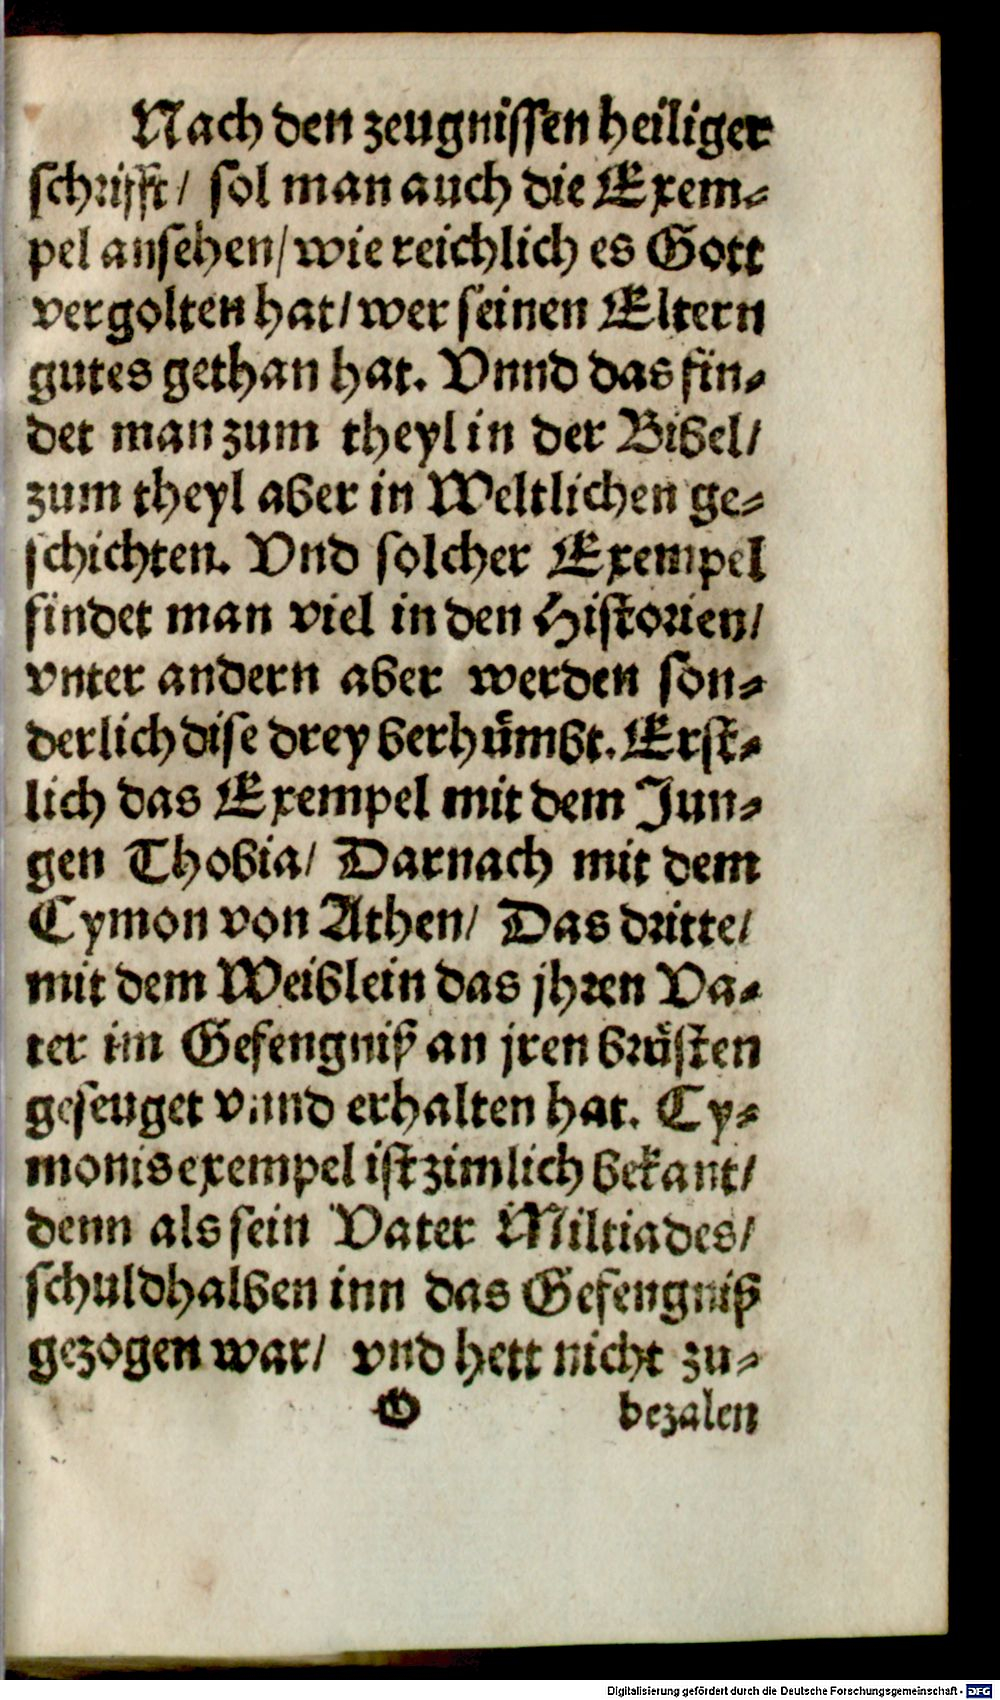 Nach den zeugnissen heiliger
schrifft / sol man auch die Exem-
pel ansehen/ wie reichlich es Gott
vergolten hat/ wer seinen Eltern
gutes gethan hat. Vnnd das fin-
det man zum theyl in der Bibel/
zum theyl aber in Weltlichen ge-
schichten. Vnd solcher Exempel
findet man viel in den Historien/
vnter andern aber werden son-
derlich dise drey berhümbt. Erst-
lich das Exempel mit dem Jun-
gen Thobia/ Darnach mit dem
Cymon von Athen/ Das dritte/
mit dem Weiblein das jhren Va-
ter im Gefengniß an jren brüsten
geseuget vnnd erhalten hat. Cy-
monis exempel ist zimlich bekant/
denn als sein Vater Miltiades/
schuldhalben inn das Gefengniß
gezogen war/ vnd hett nicht zu-
G bezalen
Digitalisierung gefördert durch die Deutsche Forschungsgemeinschaft - DFG